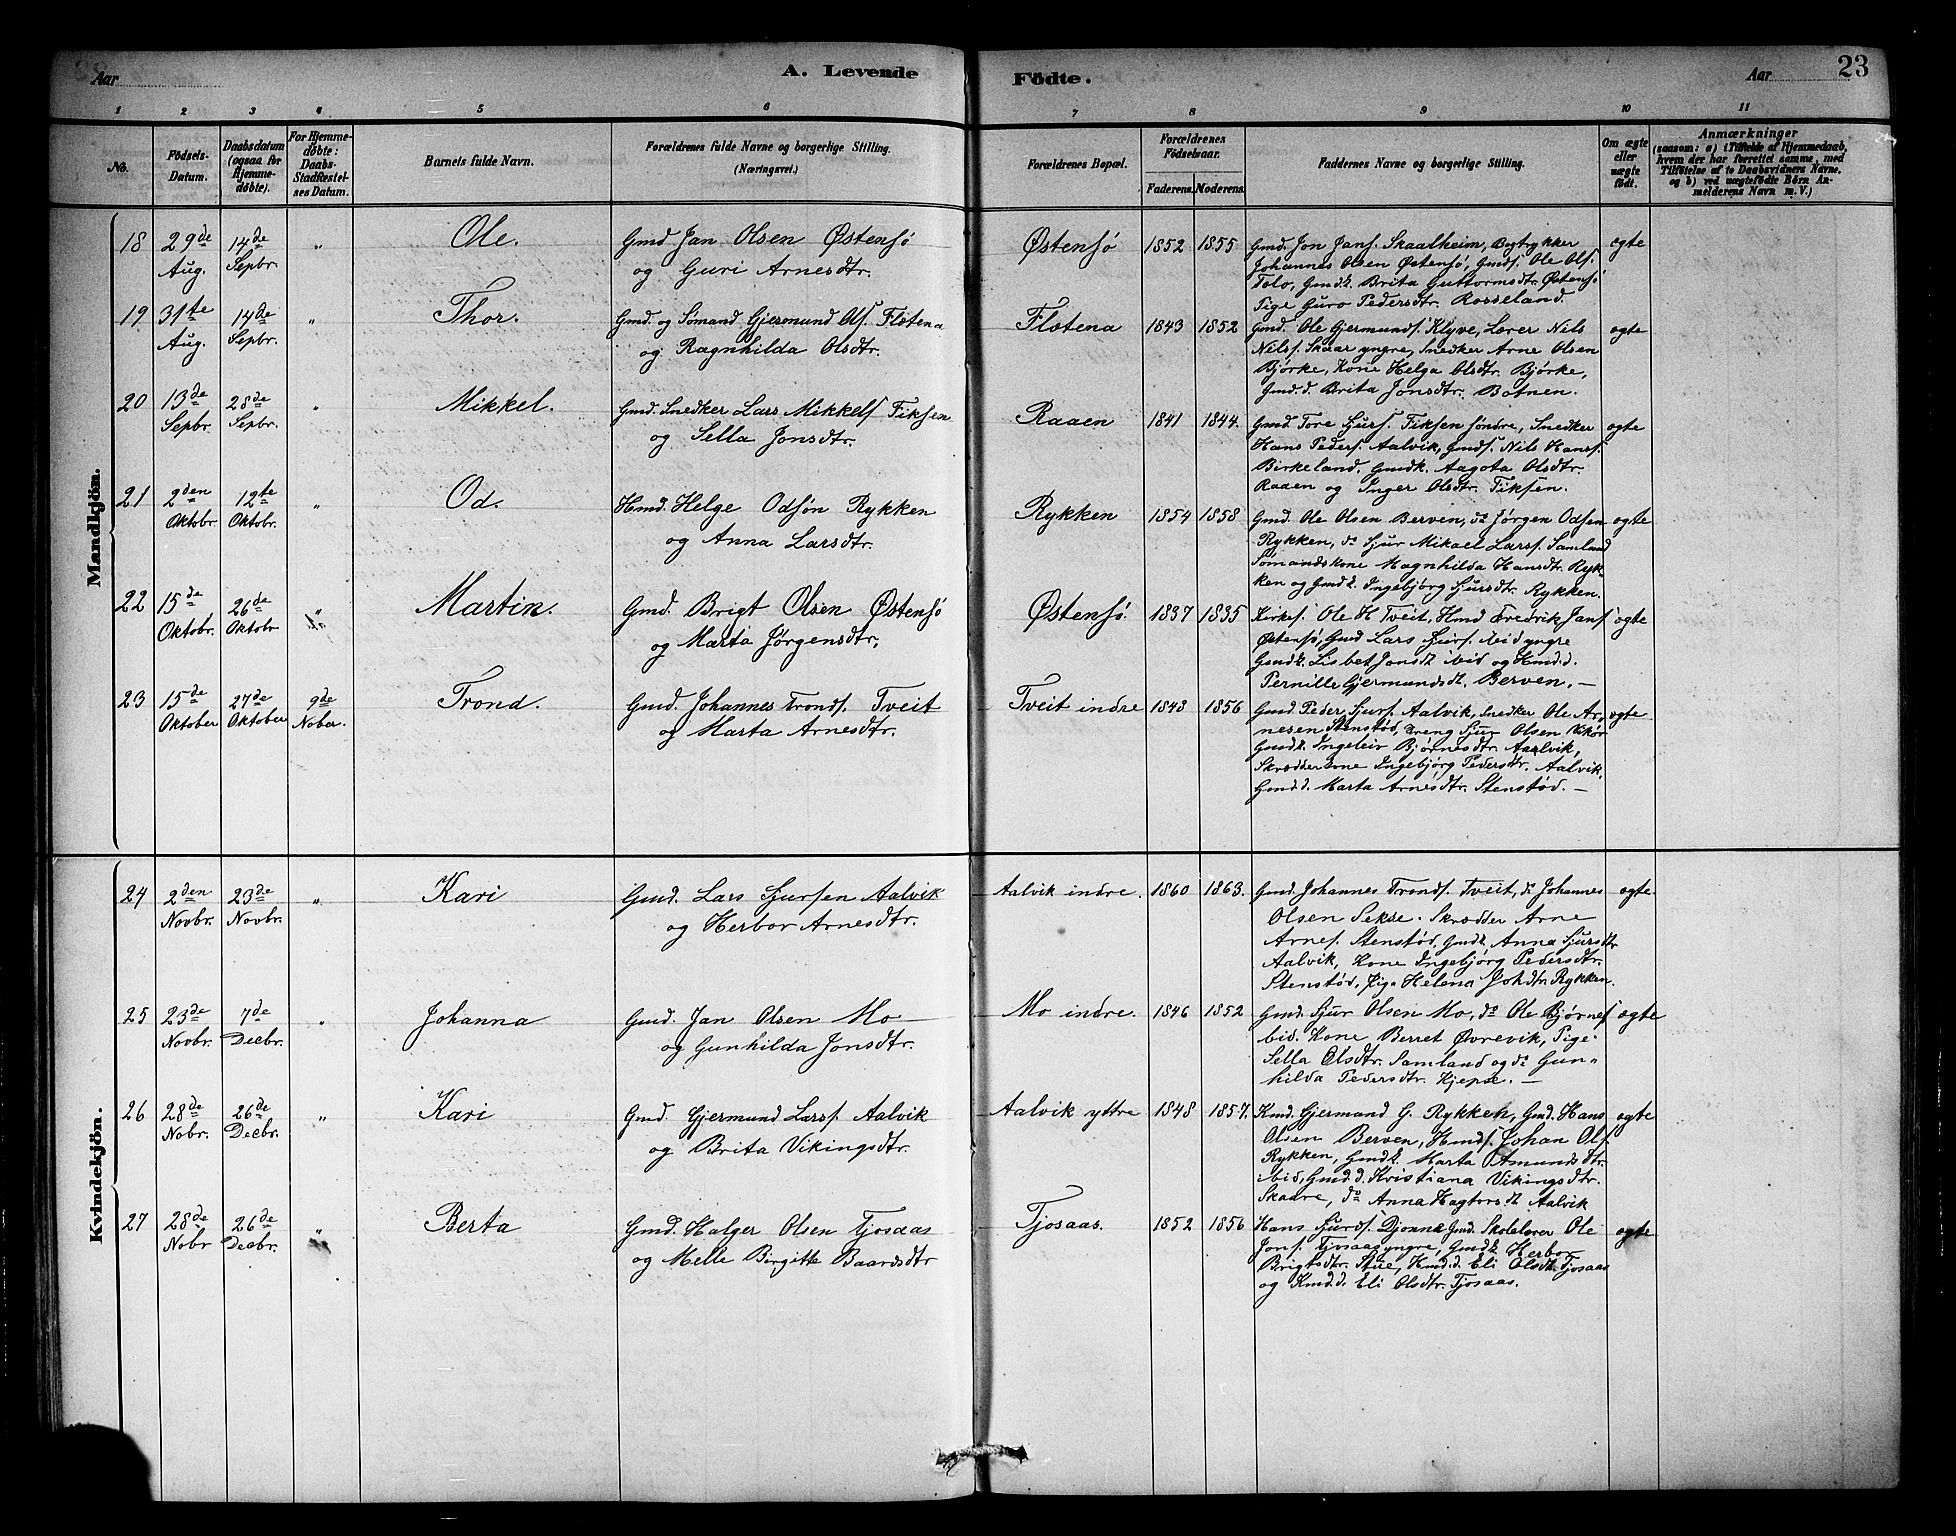 Aar
A. Levende
Födte.
Aar
23
1 2 3 4 5 6 7 8 9 10 11
No.
Födsels-Datum.
Daabsdatum (ogsaa for Hjemmedøbte).
For Hjemmedøbte: Daabs-Stadfæstelses Datum.
Barnets fulde Navn.
Forældrenes fulde Navne og borgerlige Stilling.
(Næringsvei.)
Forældrenes Bopæl.
Forældrenes Födselsaar.
Faderens. Moderens.
Faddernes Navne og borgerlige Stilling.
Om ægte eller uægte født.
Anmærkninger
(saasom: a) i Tilfælde af Hjemmedaab,
hvem der har forrettet samme, med
Tilføielse af to Daabsvidners Navne.
og b) ved uægtefödte Börn An-
melderens Navn m. V.)
Mandkjön.
18 29de Aug. 14de Sepbr. " Ole. Gmd Jan Olsen Østensø
og Guri Arnesdtr.
Østensø 1852 1855 Gmd. Jon Jans. Skaalheim, Bogtrykker ægte
Johannes Olsen Østensø, Gmds. Ole Ols.
Tolo, Gmdk. Brita Guttormsdtr. Østensø
Pige Guro Pedersdtr. Rosseland.
19 31te Aug. 14de Sepbr. " Thor. Gmd. og Sømand Gjermund Ols. Flotena
og Ragnhilda Olsdtr.
Flotena 1843 1852 Gmd. Ole Gjermunds. Klyve, Lærer Nils ægte
Nils. Skaar yngre, Snedker Arne Olsen
Bjørke, Kone Helga Olsdtr. Bjørke,
Gmd. d. Brita Jonsdtr. Botnen.
20 13de Sepbr. 28de Sepbr. " Mikkel. Gmd. Snedker Lars Mikkels. Fiksen
og Sella Jonsdtr.
Raaen 1841 1844. Gmd. Tore Sjurs. Fiksen søndre, Snedker ægte
Hans Peders. Aalvik, Gmds. Nils Hans.
Birkeland. Gmdk. Aagota Olsdtr.
Raaen og Inger Olsdtr. Fiksen.
21 2den Oktobr. 12te Oktobr. " Od. Hmd. Helge Odsøn Rykken
og Anna Larsdtr.
Rykken 1854 1858 Gmd. Ole Olsen Berven, do Jørgen Odsen ægte
Rykken, do Sjur Mikael Lars. Samland
Sømandskone Magnhilda Hansdtr. Ryk-
ken og Gmdk. Ingebjørg Sjursdtr. Rykken.
22 15de Oktobr. 26de Oktobr " Martin. Gmd. Brigt Olsen Østensø
og Marta Jørgensdtr.
Østensø. 1837 1835 Kirkes. Ole H Tveit, Hmd Fredrik Jans. ægte
Østensø, Gmd Lars Sjurs. ibid yngre
Gmdk. Lisbet Jonsdt ibid og Hmd. d.
Pernille Gjermundsdt. Berven. —
23 15de Oktober 27de Oktober 9de Nober. Trond. Gmd. Johannes Tronds. Tveit
og Marta Arnesdtr.
Tveit indre 1843 1856 Gmd. Peder Sjurs. Aalvik, Snedker Ole Ar- ægte
nesen Stenstød, Dreng Sjur Olsen Vikør
Gmdk. Ingeleiv Bjørnesdtr. Aarlvik,
Skrædderkone Ingebjørg Pedersdtr. Aalvik,
Gmd. d. Marta Arnesdtr. Stenstød. —
Kvindekjön.
24 2den Novbr. 23de Novbr. " Kari Gmd. Lars Sjursen Aalvik
og Herbor Arnesdtr.
Aalvik indre. 1860 1863. Gmd. Johannes Tronds. Tveit, do Johannes ægte
Olsen Sekse. Skrædder Arne
Arnes. Stenstød, Gmdk. Anna Sjursdtr
Aalvik, Kone Ingebjørg Pedersdtr.
Stenstød, Pige Helena Johdtr. Rykken.
25 23de Novbr. 7de Decbr. " Johanna Gmd. Jan Olsen Mo —
og Gunhilda Jonsdtr.
Mo indre. 1846 1852 Gmd. Sjur Olsen Mo, do Ole Bjørnes. ægte
ibid. Kone Berret Øvrevik, Pige
Sella Olsdtr. Samland og do Gun-
hilda Pedersdtr. Kjepse. —
26 28de Nobr. 26de Decbr. " Kari Gmd. Gjermund Lars. Aalvik
og Brita Vikingsdtr.
Aalvik yttre 1848 1857. Kmd. Gjermand G. Rykken, Gmd. Hans ægte
Olsen Berven, Hmds. Johan Ols.
Rykken, Gmdk. Marta Amundsdtr.
ibid, Gmd. d. Kristiana Vikingsdtr.
Skaare, do Anna Hagtorsdt Aalvik
27 28de Nobr 26de Decbr. " Berta Gmd. Halger Olsen Tjosaas
og Melle Birgitte Baardsdtr
Tjosaas. 1852 1856 Hans Sjurds. Djønne Gmd. Skolelærer Ole ægte
Jons. Tjosaas yngre, Gmdk. Herbor
Brigtsdtr. Stue, Hmd. d. Eli Olsdt. Tjosaas
og Kmd. d. Eli Olsdtr. Tjosaas.